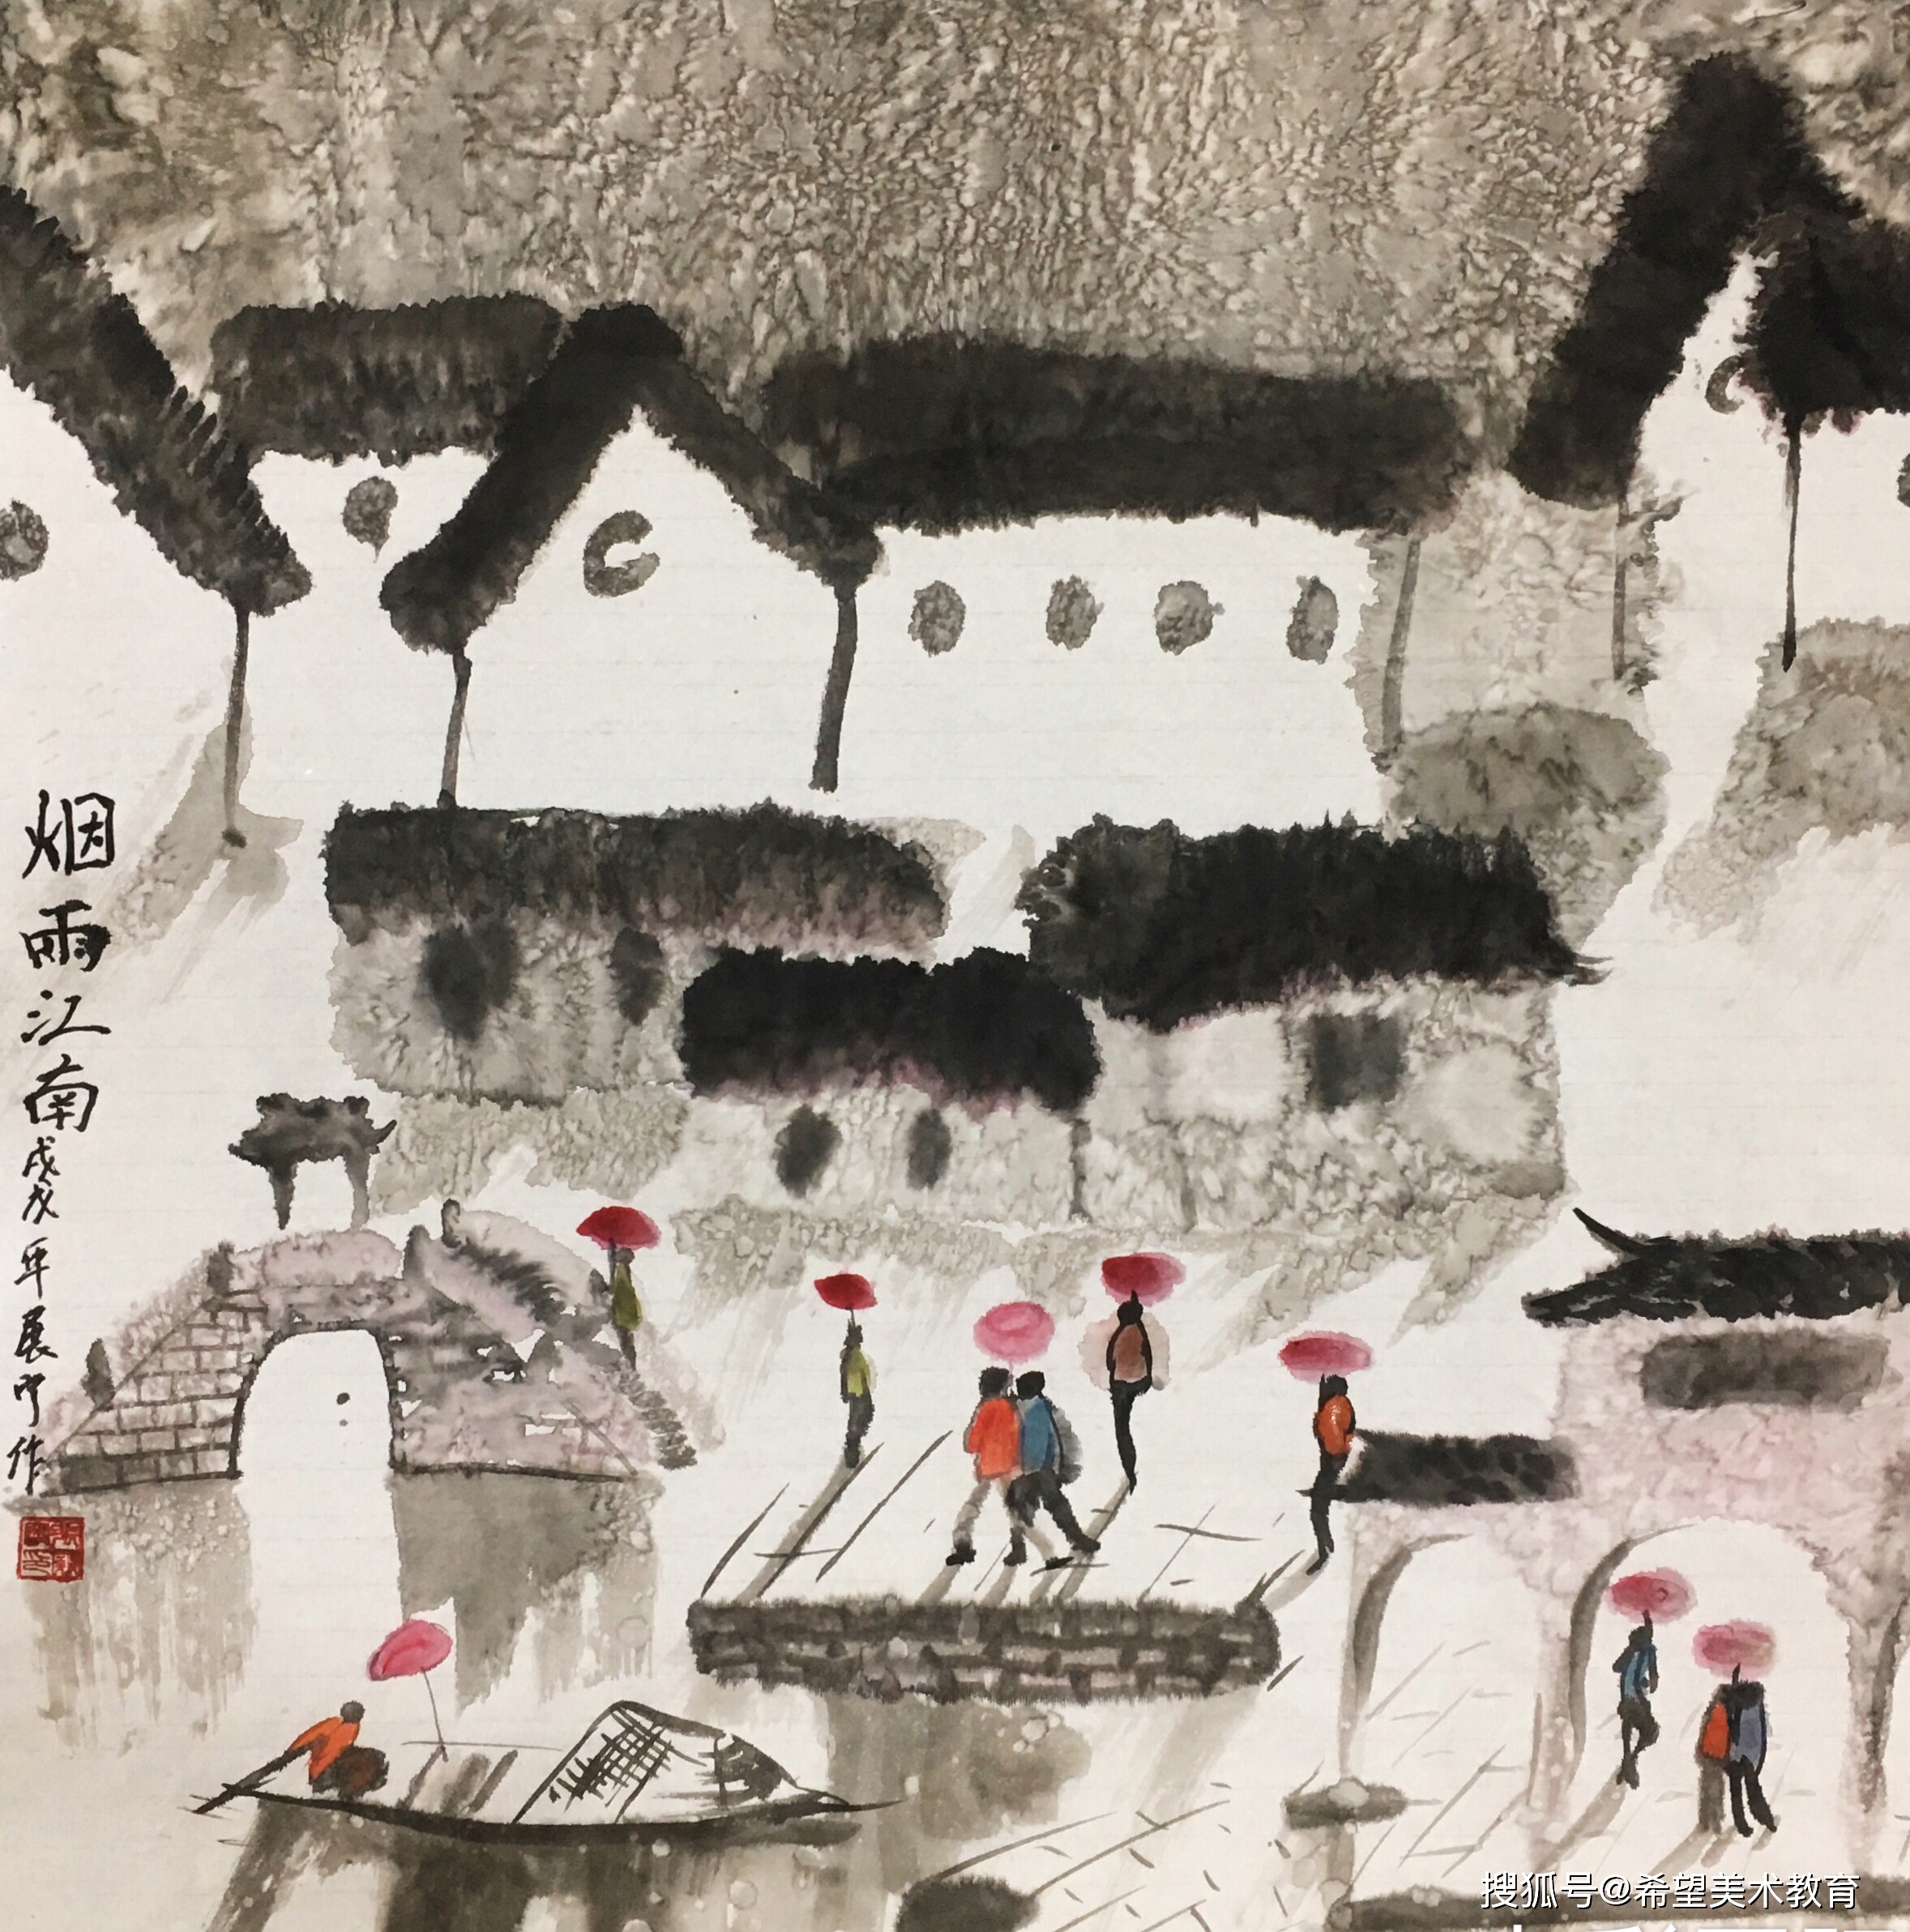 烟雨江南
戊戌年晨宁作
搜狐号@希望美术教育